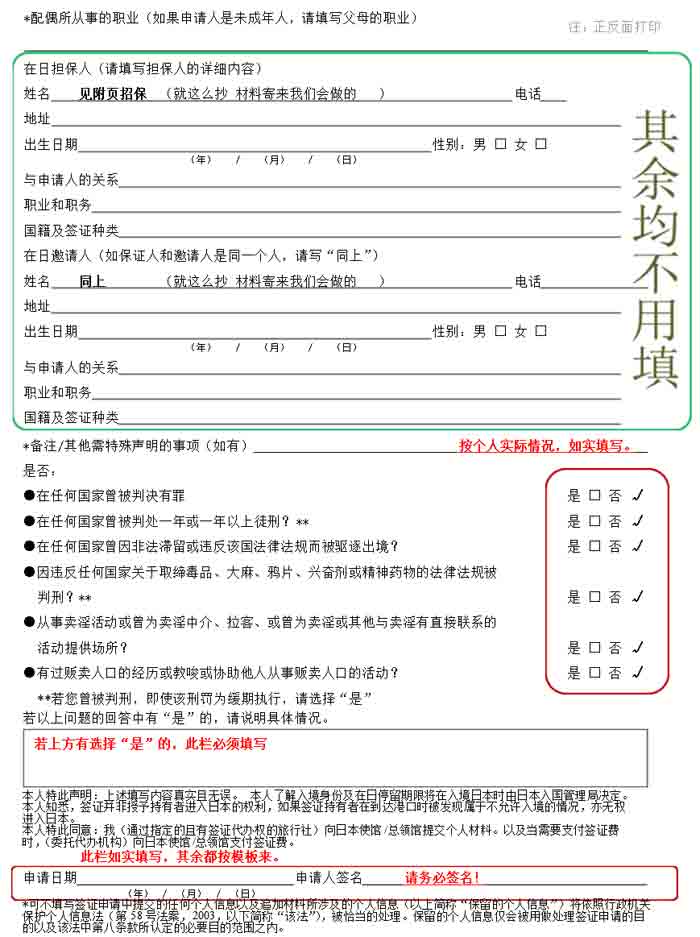 *配偶所从事的职业（如果申请人是未成年人，请填写父母的职业）
注：正反面打印
在日担保人（请填写担保人的详细内容）
姓名 见附页招保 （就这么抄 材料寄来我们会做的 ） 电话
地址
出生日期 性别：男 □ 女 □
（年） / （月） / （日）
与申请人的关系
职业和职务
国籍及签证种类
在日邀请人（如保证人和邀请人是同一个人，请写“同上”）
姓名 同上 （就这么抄 材料寄来我们会做的 ） 电话
地址
出生日期 性别：男 □ 女 □
（年） / （月） / （日）
与申请人的关系
职业和职务
国籍及签证种类
其余均不用填
*备注/其他需特殊声明的事项（如有） 按个人实际情况，如实填写。
是否：
●在任何国家曾被判决有罪 是 □ 否 ✓
●在任何国家曾被判处一年或一年以上徒刑？** 是 □ 否 ✓
●在任何国家曾因非法滞留或违反该国法律法规而被驱逐出境？ 是 □ 否 ✓
●因违反任何国家关于取缔毒品、大麻、鸦片、兴奋剂或精神药物的法律法规被
判刑？** 是 □ 否 ✓
●从事卖淫活动或曾为卖淫中介、拉客、或曾为卖淫或其他与卖淫有直接联系的
活动提供场所？ 是 □ 否 ✓
●有过贩卖人口的经历或教唆或协助他人从事贩卖人口的活动？ 是 □ 否 ✓
**若您曾被判刑，即使该刑罚为缓期执行，请选择“是”
若以上问题的回答中有“是”的，请说明具体情况。
若上方有选择“是”的，此栏必须填写
本人特此声明：上述填写内容真实且无误。 本人了解入境身份及在日停留期限将在入境日本时由日本入国管理局决定。
本人知悉，签证并非授予持有者进入日本的权利，如果签证持有者在到达港口时被发现属于不允许入境的情况，亦无权
进入日本。
本人特此同意：我（通过指定的且有签证代办权的旅行社）向日本使馆/总领馆提交个人材料。以及当需要支付签证费
时，（委托代办机构）向日本使馆/总领馆支付签证费。
此栏如实填写，其余都按模板来。
申请日期 申请人签名 请务必签名！
（年） / （月） / （日）
*可不填写签证申请中提交的任何个人信息以及追加材料所涉及的个人信息（以上简称“保留的个人信息”）将依照行政机关
保护个人信息法（第 58 号法案，2003，以下简称“该法”），被恰当的处理。保留的个人信息仅会被用做处理签证申请的目
的以及该法中第八条款所认定的必要目的范围之内。